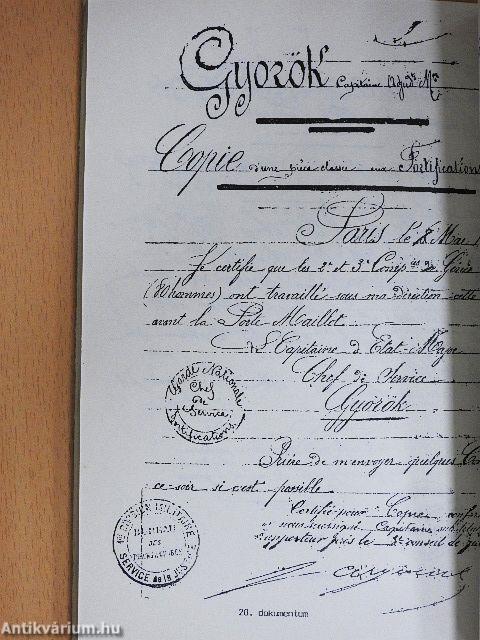 Györök Capitaine
Copie d'une pièce classée aux Fortifications
Paris le 8 Mai 1
Je certifie que les 2e et 3e Comp ies de Génie
(80 hommes) ont travaillé sous ma direction cette
avant la Porte Maillot
Capitaine d'Etat-Major
Chef de Service
Györök
Garde Nationale
Chef
de
Service
Fortifications
Prière de m'envoyer quelques
ce soir si c'est possible
Certifié pour Copie
soussigné Capitaine
rapporteur près le 3e conseil de
DIVISION MILITAIRE
SERVICE de la
20. dokumentum
Antikvárium.hu